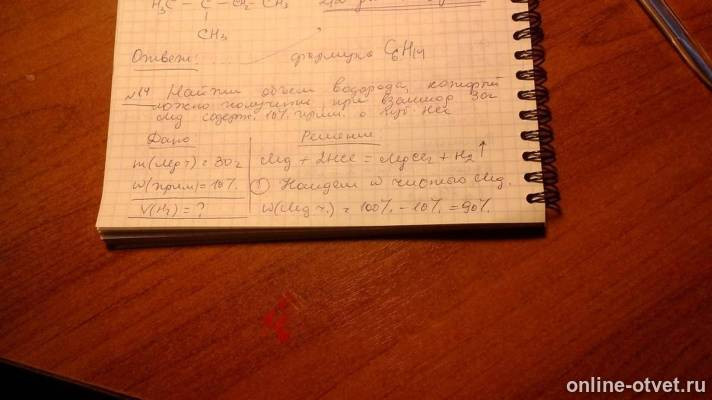 H₃C - C - CH₂ - CH₃
CH₃
Ответ: формула C₆H₁₄
№14 Найти объем водорода, который
можно получить при взаимод 30г
Mg содерж. 10% прим. с HCl
Дано Решение
m(Mg т) = 30г Mg + 2HCl = MgCl₂ + H₂↑
W(прим) = 10% ① Найдем W чистого Mg.
V(H₂) = ? W(Mg ч.) = 100% - 10% = 90%.
online-otvet.ru